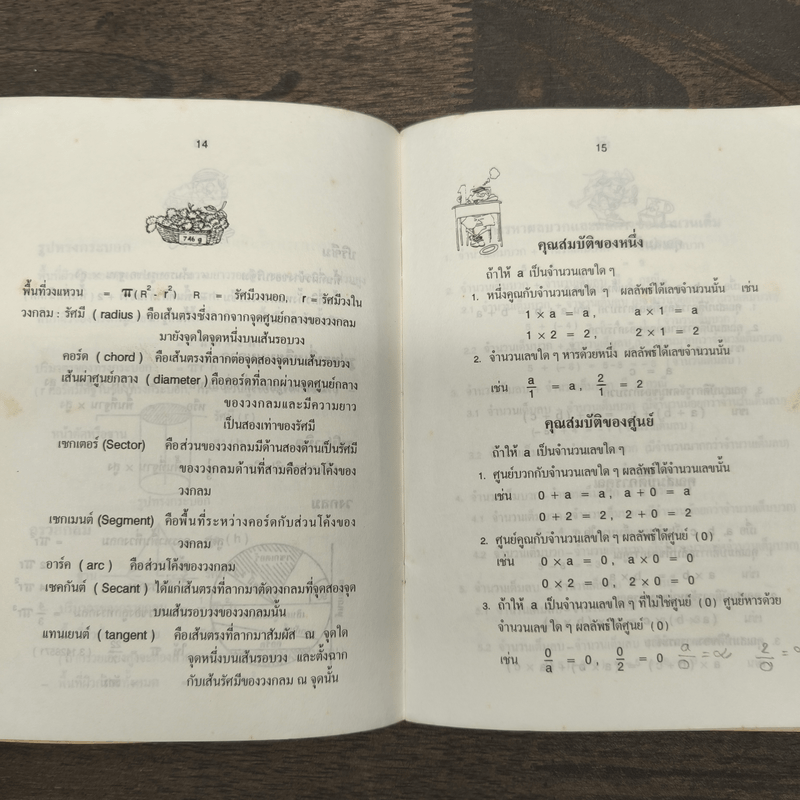 14
746 g
พื้นที่วงแหวน = π(R²- r²) R = รัศมีวงนอก, r = รัศมีวงใน
วงกลม : รัศมี ( radius ) คือเส้นตรงซึ่งลากจากจุดศูนย์กลางของวงกลม
มายังจุดใดจุดหนึ่งบนเส้นรอบวง
คอร์ด ( chord ) คือเส้นตรงที่ลากต่อจุดสองจุดบนเส้นรอบวง
เส้นผ่าศูนย์กลาง ( diameter ) คือคอร์ดที่ลากผ่านจุดศูนย์กลาง
ของวงกลมและมีความยาว
เป็นสองเท่าของรัศมี
เซกเตอร์ (Sector) คือส่วนของวงกลมมีด้านสองด้านเป็นรัศมี
ของวงกลมด้านที่สามคือส่วนโค้งของ
วงกลม
เซกเมนต์ (Segment) คือพื้นที่ระหว่างคอร์ดกับส่วนโค้งของ
วงกลม
อาร์ค ( arc ) คือส่วนโค้งของวงกลม
เซคกันต์ ( Secant ) ได้แก่เส้นตรงที่ลากมาตัดวงกลมที่จุดสองจุด
บนเส้นรอบวงของวงกลมนั้น
แทนเยนต์ ( tangent ) คือเส้นตรงที่ลากมาสัมผัส ณ จุดใด
จุดหนึ่งบนเส้นรอบวง และตั้งฉาก
กับเส้นรัศมีของวงกลม ณ จุดนั้น
15
คุณสมบัติของหนึ่ง
ถ้าให้ a เป็นจำนวนเลขใด ๆ
1. หนึ่งคูณกับจำนวนเลขใด ๆ ผลลัพธ์ได้เลขจำนวนนั้น เช่น
1 × a = a, a × 1 = a
1 × 2 = 2, 2 × 1 = 2
2. จำนวนเลขใด ๆ หารด้วยหนึ่ง ผลลัพธ์ได้เลขจำนวนนั้น
เช่น a/1 = a, 2/1 = 2
คุณสมบัติของศูนย์
ถ้าให้ a เป็นจำนวนเลขใด ๆ
1. ศูนย์บวกกับจำนวนเลขใด ๆ ผลลัพธ์ได้จำนวนเลขนั้น
เช่น 0 + a = a, a + 0 = a
0 + 2 = 2, 2 + 0 = 2
2. ศูนย์คูณกับจำนวนเลขใด ๆ ผลลัพธ์ได้ศูนย์ (0)
เช่น 0 × a = 0, a × 0 = 0
0 × 2 = 0, 2 × 0 = 0
3. ถ้าให้ a เป็นจำนวนเลขใด ๆ ที่ไม่ใช่ศูนย์ (0) ศูนย์หารด้วย
จำนวนเลข ใด ๆ ผลลัพธ์ได้ศูนย์ (0)
เช่น 0/a = 0, 0/2 = 0 a/0 = ∝ 2/0 = ∝